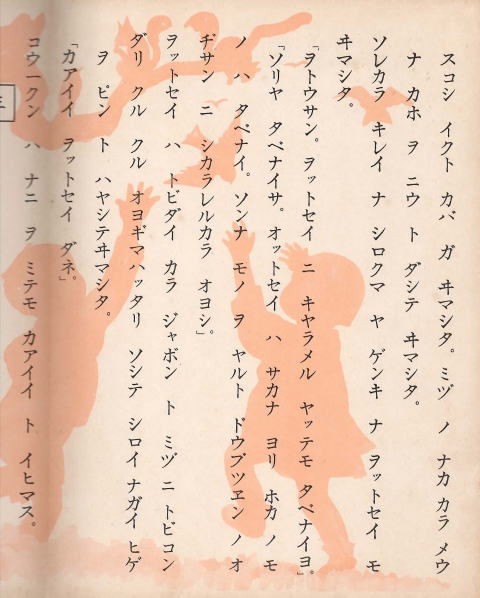 スコシ イクト カバ ガ ヰマシタ。ミヅ ノ ナカ カラ メウ
ナ カホ ヲ ニウ ト ダシテ ヰマシタ。
ソレカラ キレイ ナ シロクマ ヤ ゲンキ ナ ヲットセイ モ
ヰマシタ。
「ヲトウサン。ヲットセイ ニ キャラメル ヤッテモ タベナイヨ」。
「ソリヤ タベナイサ。オットセイ ハ サカナ ヨリ ホカ ノ モ
ノ ハ タベナイ。ソンナ モノ ヲ ヤルト ドウブツヱン ノ オ
ヂサン ニ シカラレルカラ オヨシ」。
ヲットセイ ハ トビダイ カラ ジャボン ト ミヅ ニ トビコン
ダリ クル クル オヨギマハッタリ ソシテ シロイ ナガイ ヒゲ
ヲ ピン ト ハヤシテヰマシタ。
「カアイイ ヲットセイ ダネ。」
コウ一クン ハ ナニ ヲ ミテモ カアイイ ト イヒマス。